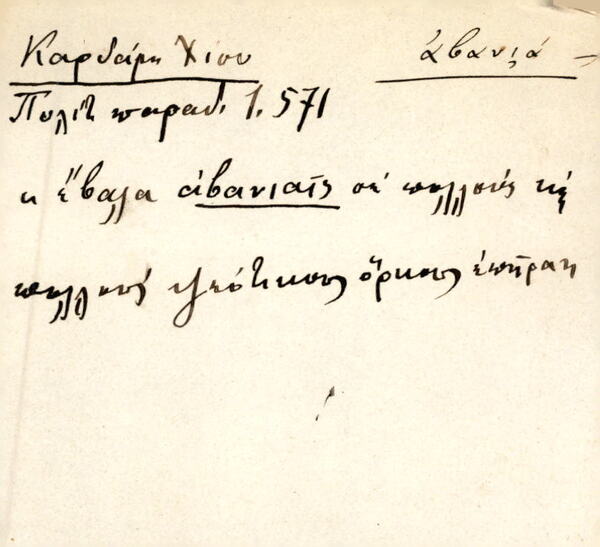 Καρδάμη Χίου ἀβανιά
Πολίτ παραδ. 1. 571
κ' ἔβαλα ἀβανιαῖς σέ πολλούς κέ
πολλούς ψεύτικους ὅρκους ἐπῆρα